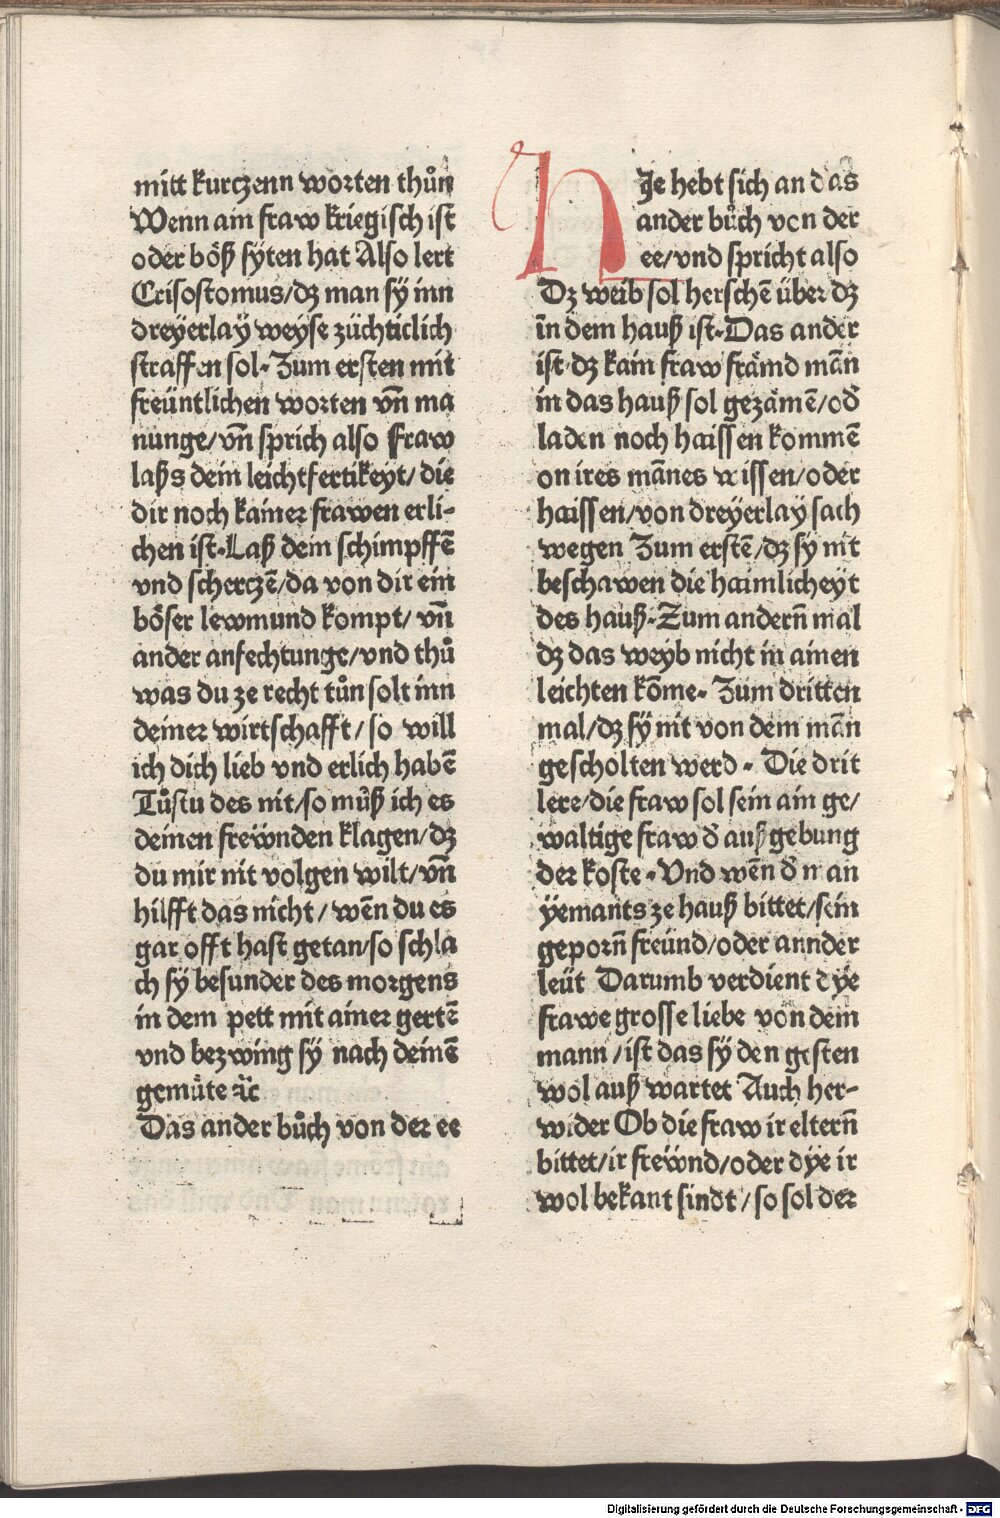 mitt kurczenn worten thůn
Wenn ain fraw kriegisch ist
oder böß syten hat Also lert
Crisostomus/dz man sÿ inn
dreÿerlaÿ weÿse züchticlich
straffen sol. Zum ersten mit
freüntlichen worten vn̄ ma
nunge/vn̄ sprich also fraw
laßs dein leichtfertikeyt/ die
dir noch kainer frawen erli-
chen ist. Laß dein schimpffē
vnd scherczē/da von dir ein
böser lewmund kompt/ vn̄
ander anfechtunge/vnd thů
was du ze recht tůn solt inn
deiner wirtschafft/so will
ich dich lieb vnd erlich habē
Tůstu des nit/so můß ich es
deinen freẅnden klagen/dz
du mir nit volgen wilt/vn̄
hilfft das nicht/wēn du es
gar offt hast getan/so schla
ch sÿ besunder des morgens
in dem pett mit ainer gertē
vnd bezwing sÿ nach deinē
gemüte ꝛc
Das ander bůch von der ee
HJe hebt sich an das
ander bůch von der
ee/vnd spricht also
Dz weib sol herschē über dz
in dem hauß ist. Das ander
ist dz kain fraw främd mān
in das hauß sol gezämē/od̄
laden noch haissen kommē
on ires mānes wissen/oder
haissen/von dreÿerlaÿ sach
wegen Zum erstē/dz sÿ nit
beschawen die haimlicheyt
des hauß. Zum andern̄ mal
dz das weyb nicht in ainen
leichten kōme. Zum dritten
mal/dz sÿ nit von dem mān
gescholten werd. Die drit
lere/die fraw sol sein ain ge/
waltige fraw d̄ außgebung
der koste. Vnd wēn d̄ man
ÿemants ze hauß bittet/sein
geporn̄ freünd/oder annder
leüt Darumb verdient dÿe
frawe grosse liebe von dem
mann/ist das sÿ den gesten
wol auß wartet Auch her-
wider Ob die fraw ir eltern̄
bittet/ir freẅnd/oder dÿe ir
wol bekant sindt/so sol der
Digitalisierung gefördert durch die Deutsche Forschungsgemeinschaft - DFG